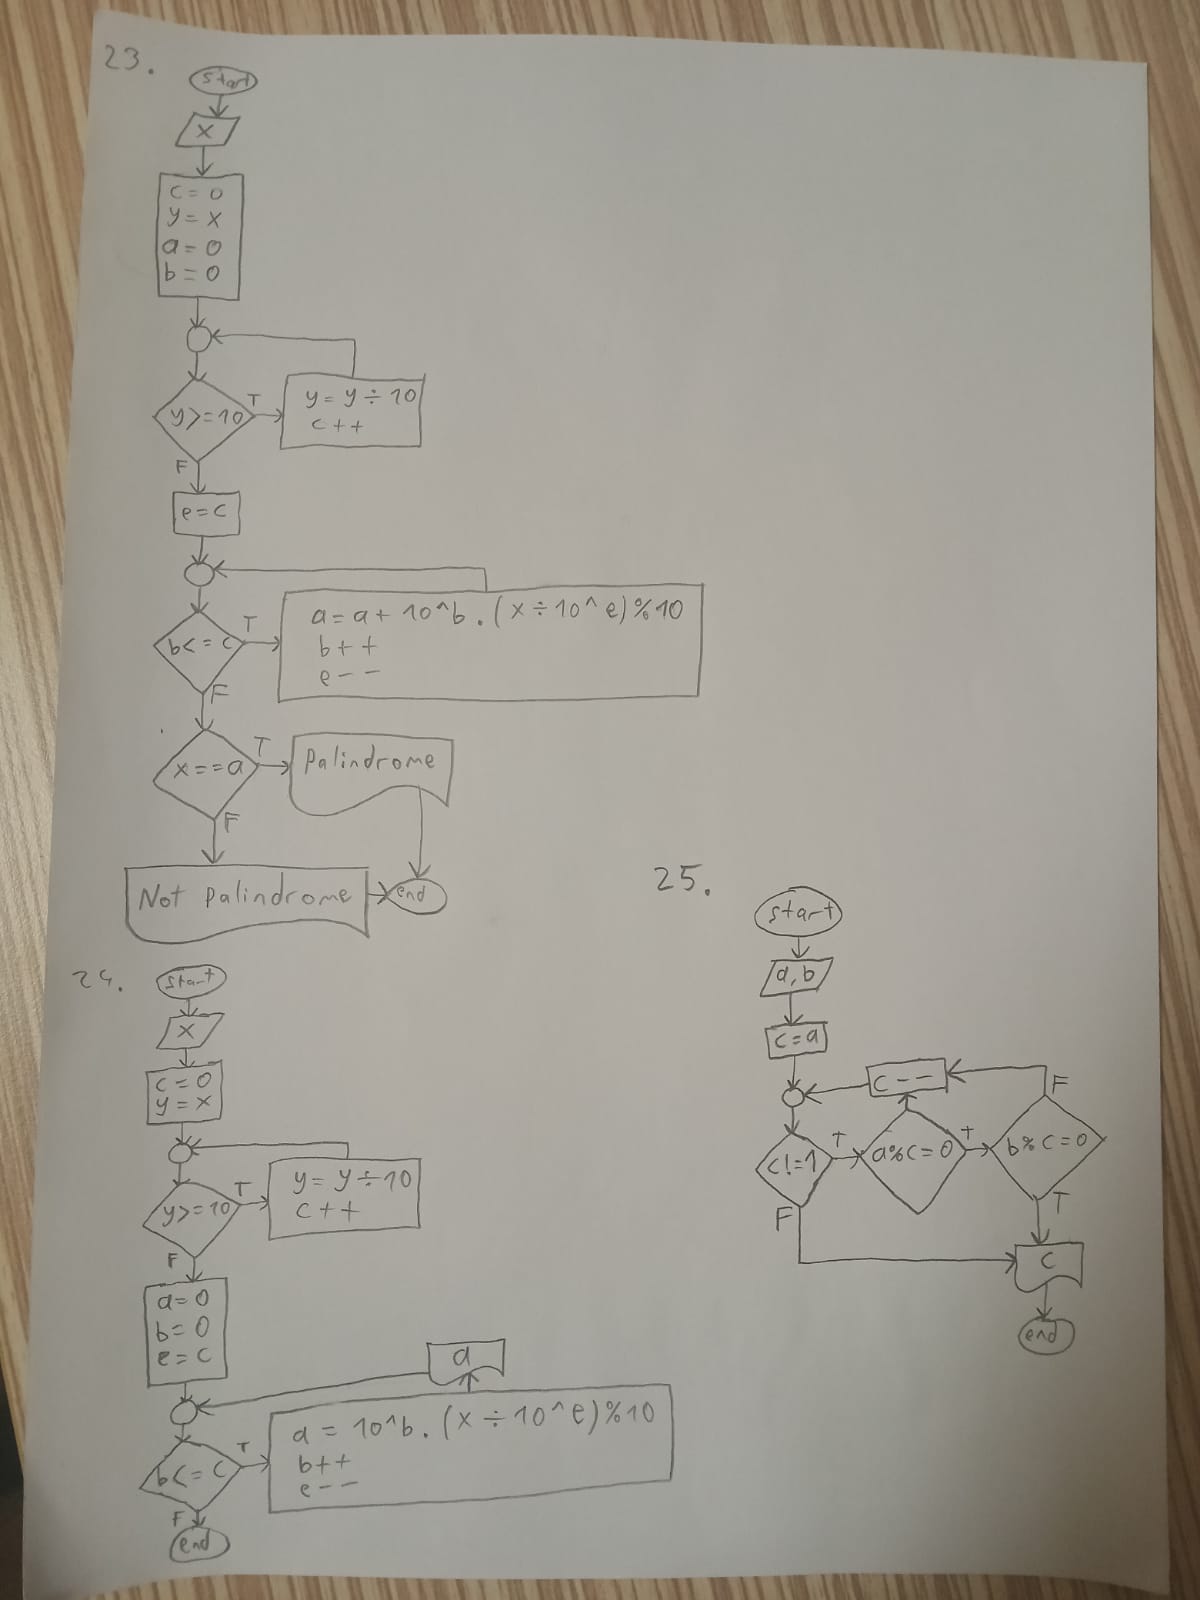 23.
start
x
c = 0
y = x
a = 0
b = 0
y >= 10
T
y = y ÷ 10
c + +
F
e = c
b < = c
T
a = a + 10^b . (x ÷ 10^e) % 10
b + +
e - -
F
x = = a
T
Palindrome
F
Not palindrome
end
24.
start
x
c = 0
y = x
y >= 10
T
y = y ÷ 10
c + +
F
a = 0
b = 0
e = c
a
b < = c
T
a = 10^b . (x ÷ 10^e) % 10
b + +
e - -
F
end
25.
start
a, b
c = a
c - -
F
c ! = 1
T
a % c = 0
T
b % c = 0
F
T
c
end